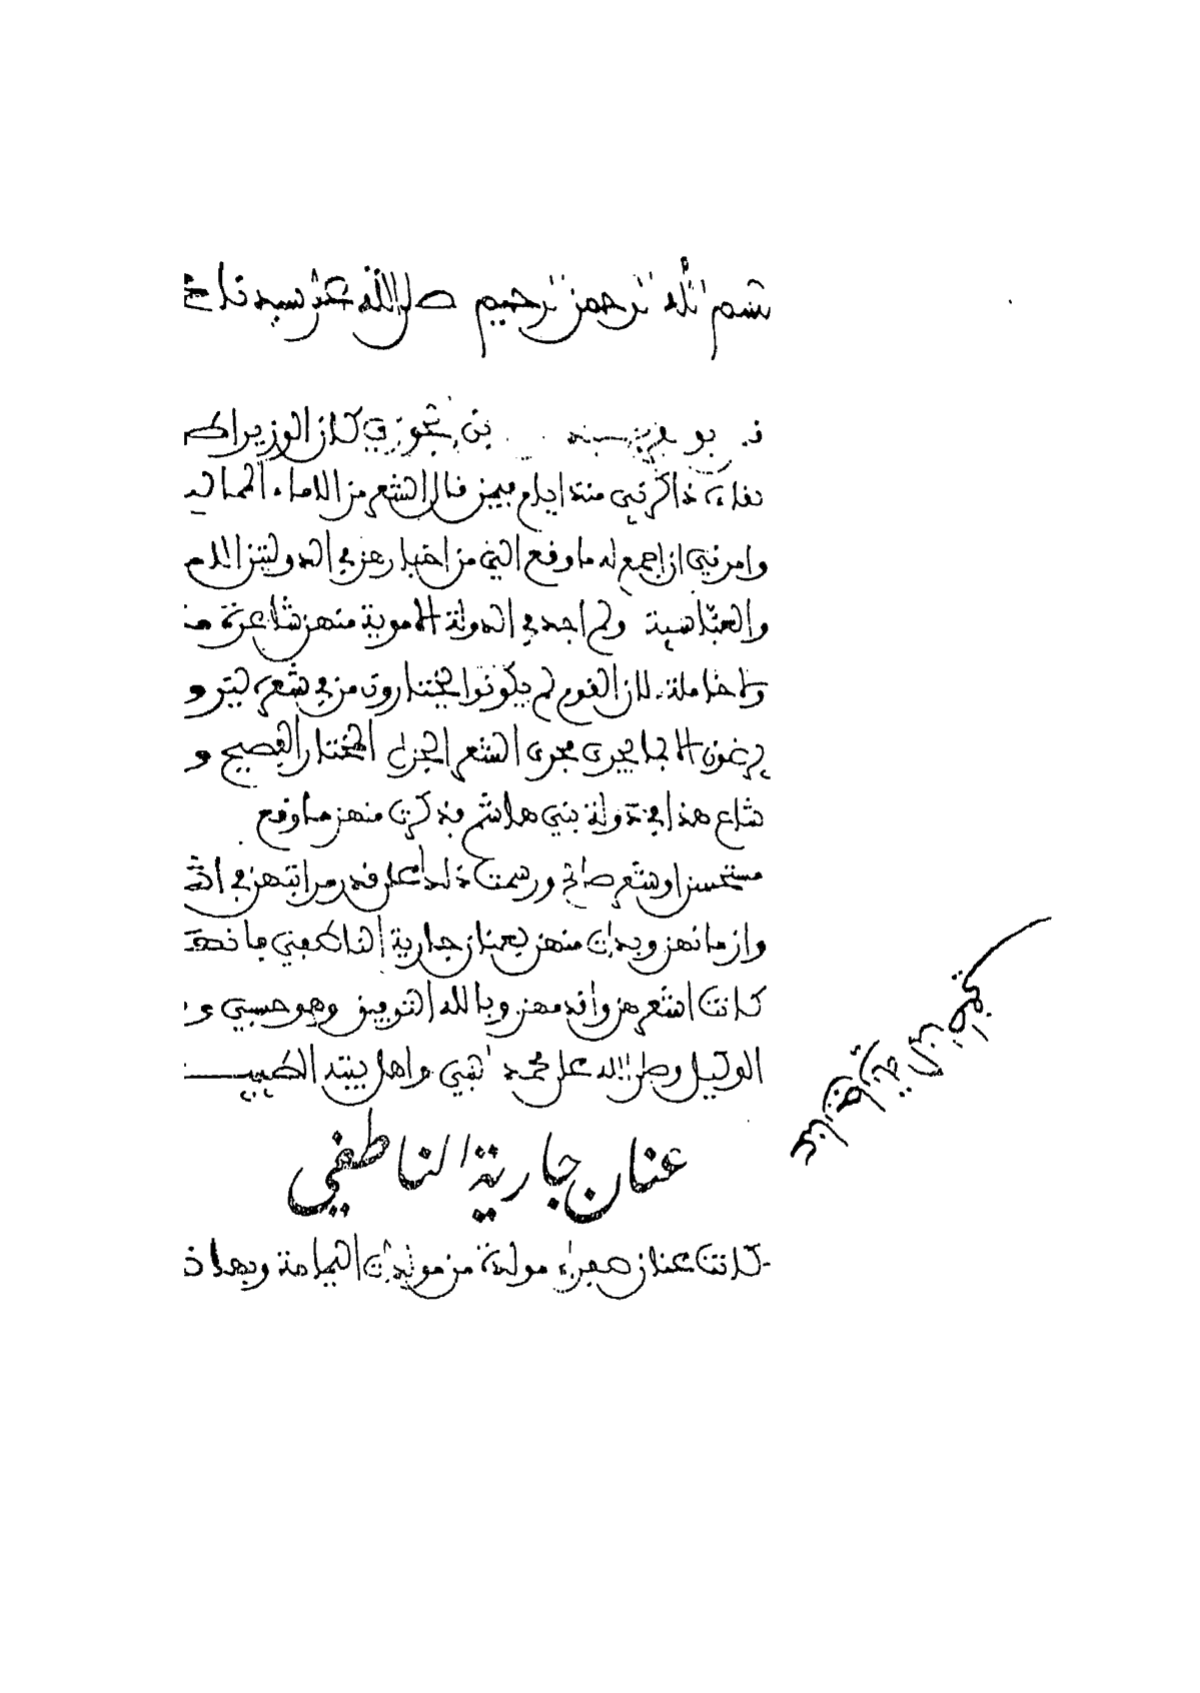 بسم الله الرحمن الرحيم صلى الله على سيدنا
بو بن الجوزي كان الوزير
ذاكرني منذ ايام فيمن قال الشعر من الاماء المماليـ
وامرني ان اجمع له ما وقع الي من اخبارهن في الدولتين الامـ
والعباسية ولم اجد في الدولة الاموية منهن شاعرة
ولا خاملة لان القوم لم يكونوا يختارون من في شعره لين و
يرغون الا بما يجري مجرى الشعر الجزل المختار الفصيح و
شاع هذا في دولة بني هاشم فذكرت منهن ما وقع
مستحسن او شعر صالح ورسمت ذلك على قدر مراتبهن في
وازمانهن وبدات منهن بعنان جارية الناطفي فانها
كانت اشعرهن واقدمهن وبالله التوفيق وهو حسبي و
الوكيل وصلى الله على محمد النبي واهل بيته الطيبيـــن
عنان جارية الناطفي
كانت عنان صفراء مولدة من مولدات اليمامة وبها
عنان جارية الناطفي